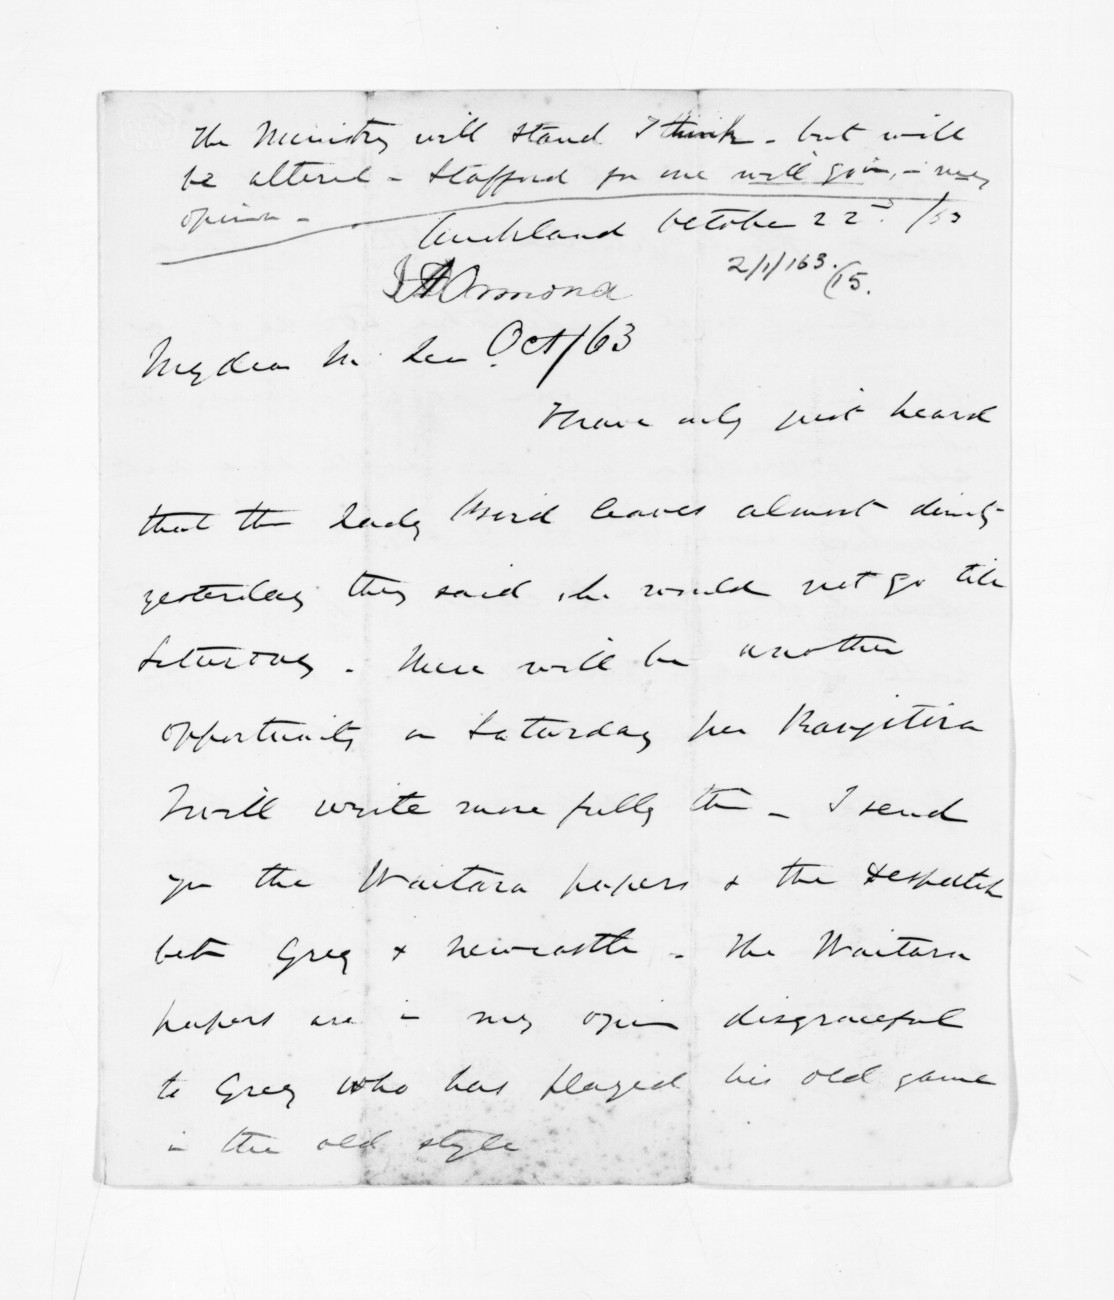 The Ministry will stand I think - but will
be altered - Stafford for one will go in, in my
opinion -
Auckland October 22d /63
2/1/163.
/15.
J A Ormond
Oct/63
My dear McLean
I have only just heard
that the Lady Bird leaves almost directly
yesterday they said she would not go till
Saturday - There will be another
opportunity on Saturday per Rangitira
I will write more fully then - I send
you the Waitara papers & the despatch
betn Grey & Newcastle - The Waitara
papers are in my opinion disgraceful
to Grey who has played his old game
in the old style